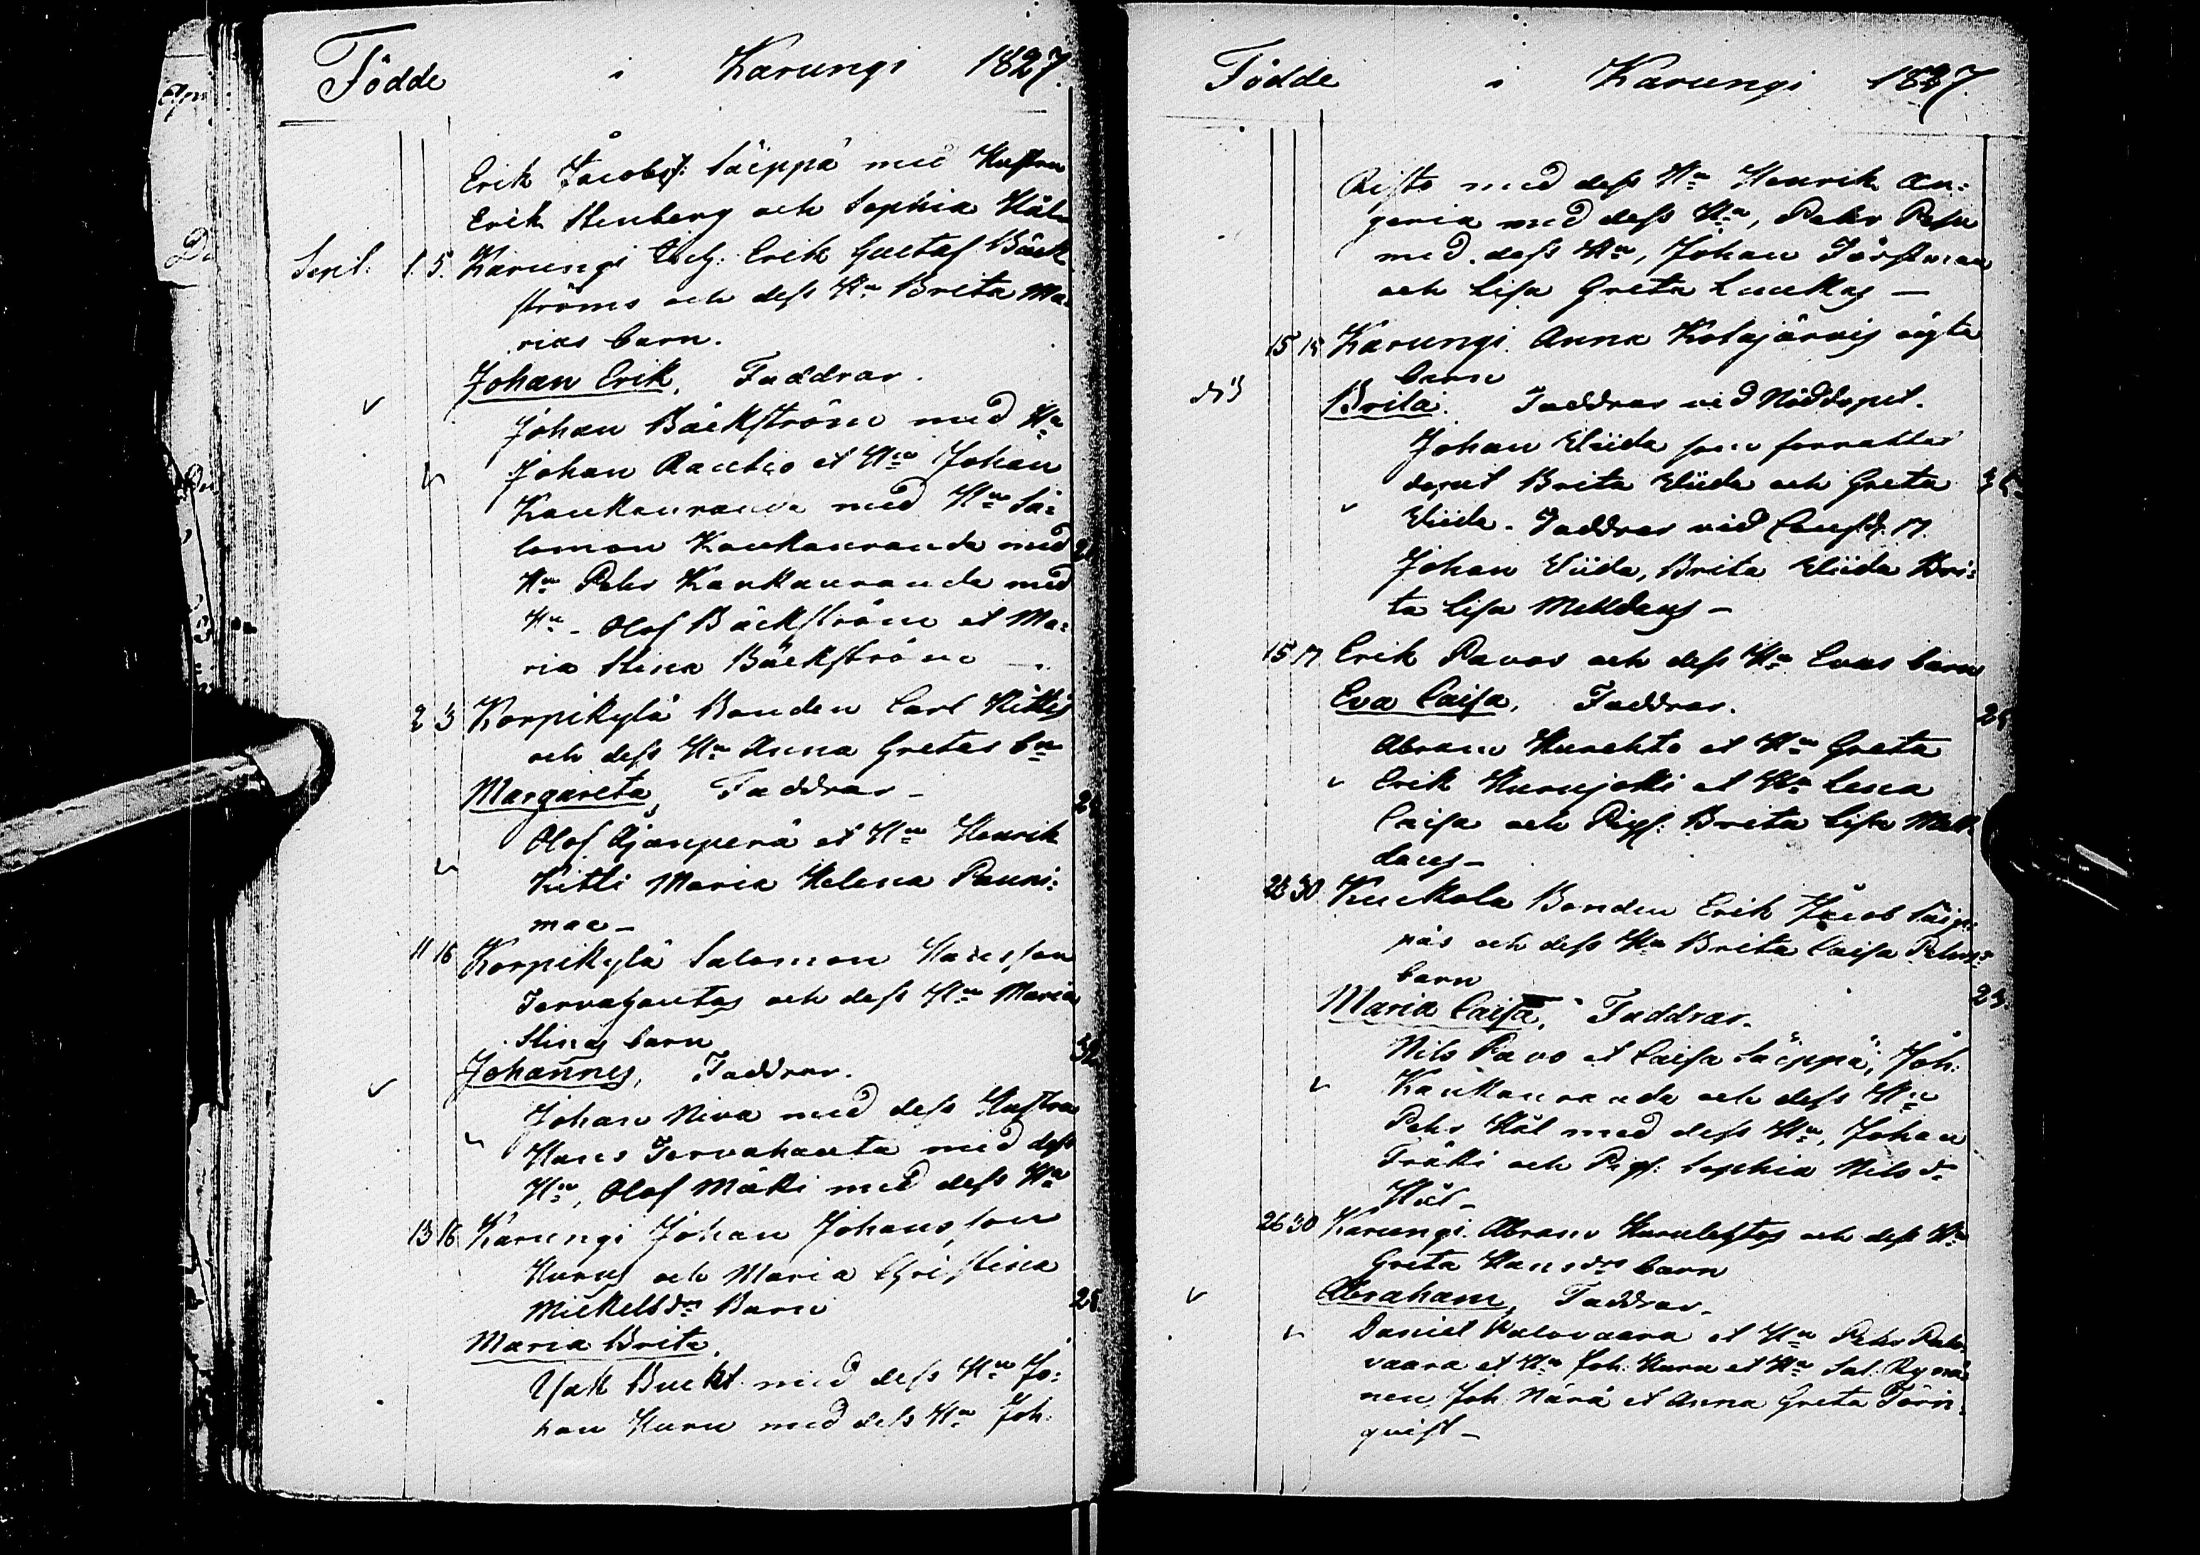 Födde i Karungi 1827.
Erik Jacobss: Säippä med Hustru
Erik Stenberg och Sophia Hål
Sept: 1. 5. Karungi Erik Gustaf Bäck
ströms och dess Hu Brita Ma
rias barn.
Johan Erik, Faddrar.
Johan Bäckström med Hu
Johan Rautio et Hu Johan
Kaukauranda med Hu Sa=
lomon Kaukauranda med
Hu Pehr Kaukauranda med
Hu - Olof Bäckström et Ma=
ria Stina Bäckström
2 3 Korpikylä Bonden Carl Kittis
och dess Hu Anna Gretas bn
Margareta, Faddrar - 24
Olof Ajanperä et Hu Henrik
Kitti Maria Helena Pauni=
maa -
11 16 Korpikylä Salomon Hansson
Tervahautas och dess Hu Maria
Stinas barn 32
Johannes, Faddrar.
Johan Niva med dess Hustru
Hans Tervahauta med dess
Hu, Olof Mäki med dess Hu
13 16 Karungi Johan Johansson
Hurus och Maria Christina
Mickelsdr Barn 28
Maria Brita.
Isak Buckt med dess Hu Jo=
han Huru med dess Hu Joh:
Födde i Karungi 1827.
Risto med dess Hu Henrik An=
geria med dess Hu, Pehr
med dess Hu, Johan
och Lisa Greta Luukas -
15 15 Karungi. Anna Kolajärvis oägta
barn
Brita. Faddrar vid Nöddopet.
Johan Viida som förrättat
dopet Brita Viida och Greta
Viida. Faddrar vid 17.
Johan Viida, Brita Viida Bri=
ta Lisa Mukkdaus -
15 17 Erik Pavos och dess Hu Evas barn
Eva Caisa, Faddrar.
Abram Hurulehto et Hu Greta
Erik Hurujoki et Hu Lena
Caisa och Pig: Brita Lisa
daus -
28 30 Kuckola Bonden Erik Jacob Säip
päs och dess Hu Brita Caisa Pehrs
barn
Maria Caisa, Faddrar. 23
Nils Pavo et Caisa Säippä, Joh:
Kaukauranda och dess Hu
Pehr Hål med dess Hu, Johan
Träki och Pig: Sophia Nilsdr
Hål -
26 30 Karungi. Abram Hurulehtos och dess Hu
Greta Hansdrs barn
Abraham, Faddrar -
Daniel Palovaara et Hu Pehr Palo
vaara et Hu Joh: Huru et Hu Sal: Rymä
nen Joh: Närä et Anna Greta Törn=
quist -